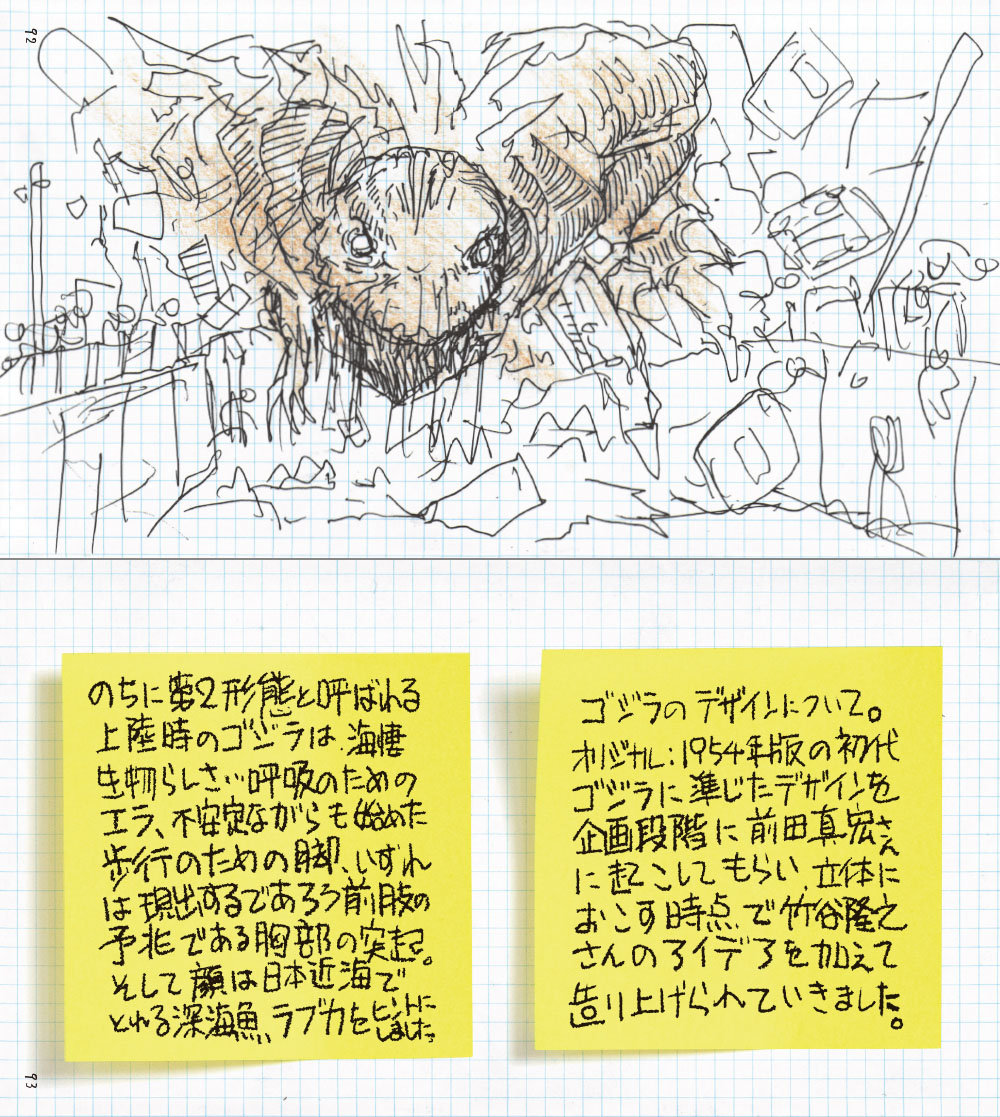 92
のちに第2形態と呼ばれる
上陸時のゴジラは、海棲
生物らしさい呼吸のための
エラ、不安定ながらも始めた
歩行のための脚、いずれ
は現出するであろう前肢の
予兆である胸部の突起。
そして顔は日本近海で
とれる深海魚、ラブカをヒントにしました。
ゴジラのデザインについて。
オリジナル:1954年版の初代
ゴジラに準じたデザインを
企画段階に前田真宏さん
に起こしてもらい、立体に
おこす時点で竹谷隆之
さんのアイデアを加えて
造り上げられていきました。
93